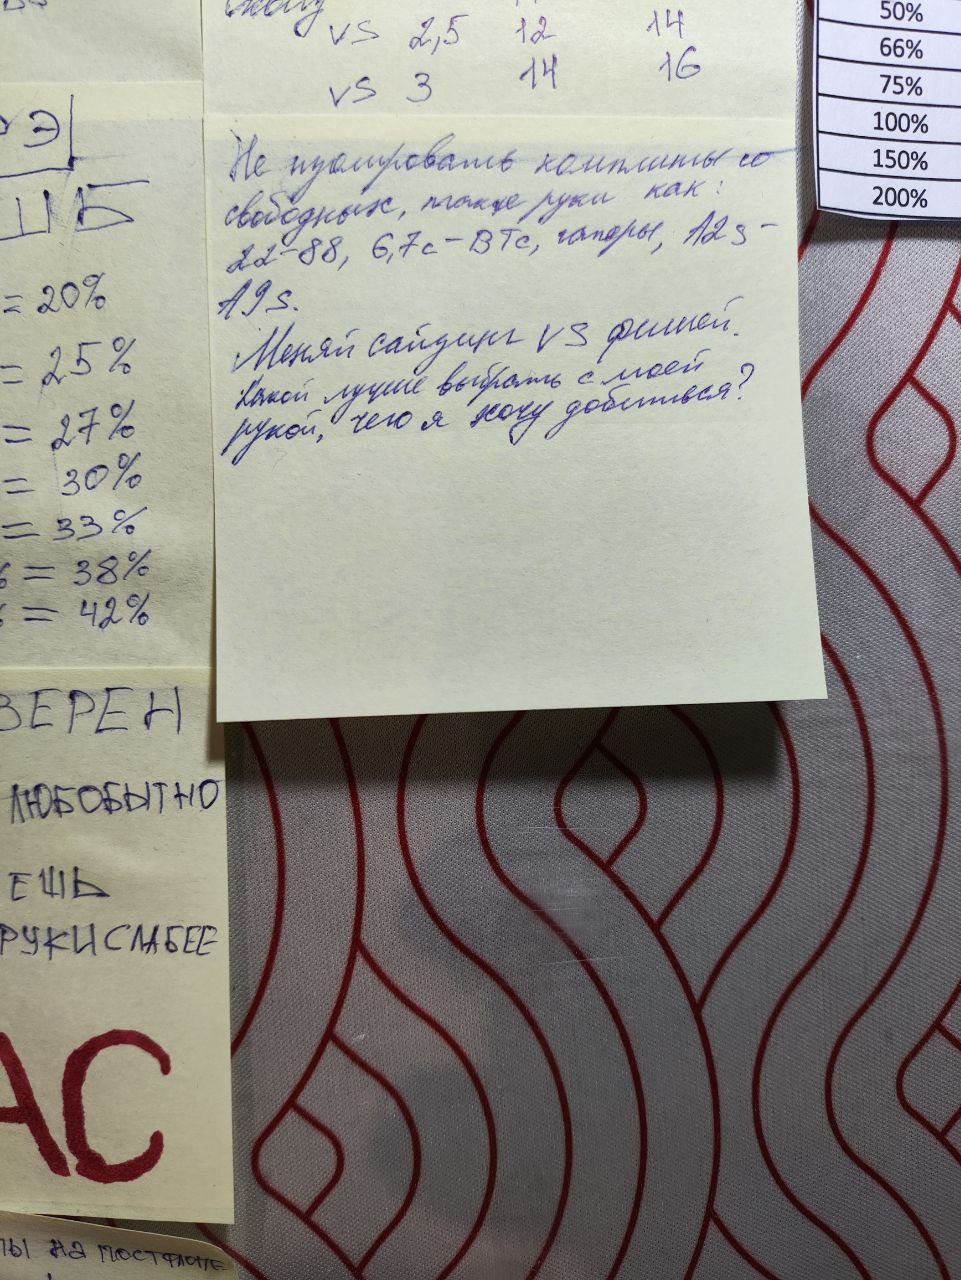 vs 2,5 12 14
vs 3 14 16
50%
66%
75%
100%
150%
200%
РЭ
ШБ
= 20%
= 25%
= 27%
= 30%
= 33%
% = 38%
% = 42%
Не пуолировать комплиты со
свободных, также руки как:
22-88, 6,7с-ВТс, гаперы, A2s-
A9s.
Меняй сайзинг VS фишей.
Какой лучше выбрать с моей
рукой, чего я хочу добиться?
ВЕРЕН
ЛЮБОБЫТНО
ЕШЬ
РУКИ СЛАБЕЕ
АС
НА ПОСТФЛОПЕ